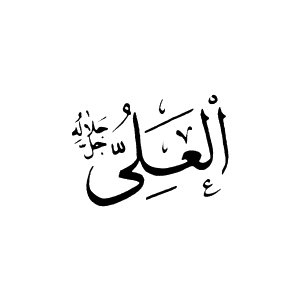 الْعَلِىُّ
جل جلاله